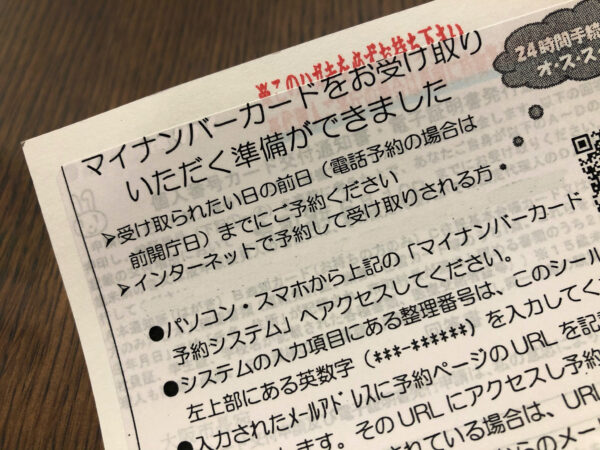 ※このハガキも必ずお持ち下さい
24時間手続
オ・ス・ス
マイナンバーカードをお受け取り
いただく準備ができました
➢受け取られたい日の前日（電話予約の場合は
前開庁日）までにご予約ください
➢インターネットで予約して受け取りされる方・・・
●パソコン・スマホから上記の「マイナンバーカード
予約システム」へアクセスしてください。
●システムの入力項目にある整理番号は、このシール
左上部にある英数字（***-******）を入力してく
●入力されたﾒｰﾙｱﾄﾞﾚｽに予約ページのURLを記
します。そのURLにアクセスし予約
されている場合は、URL
からのメー